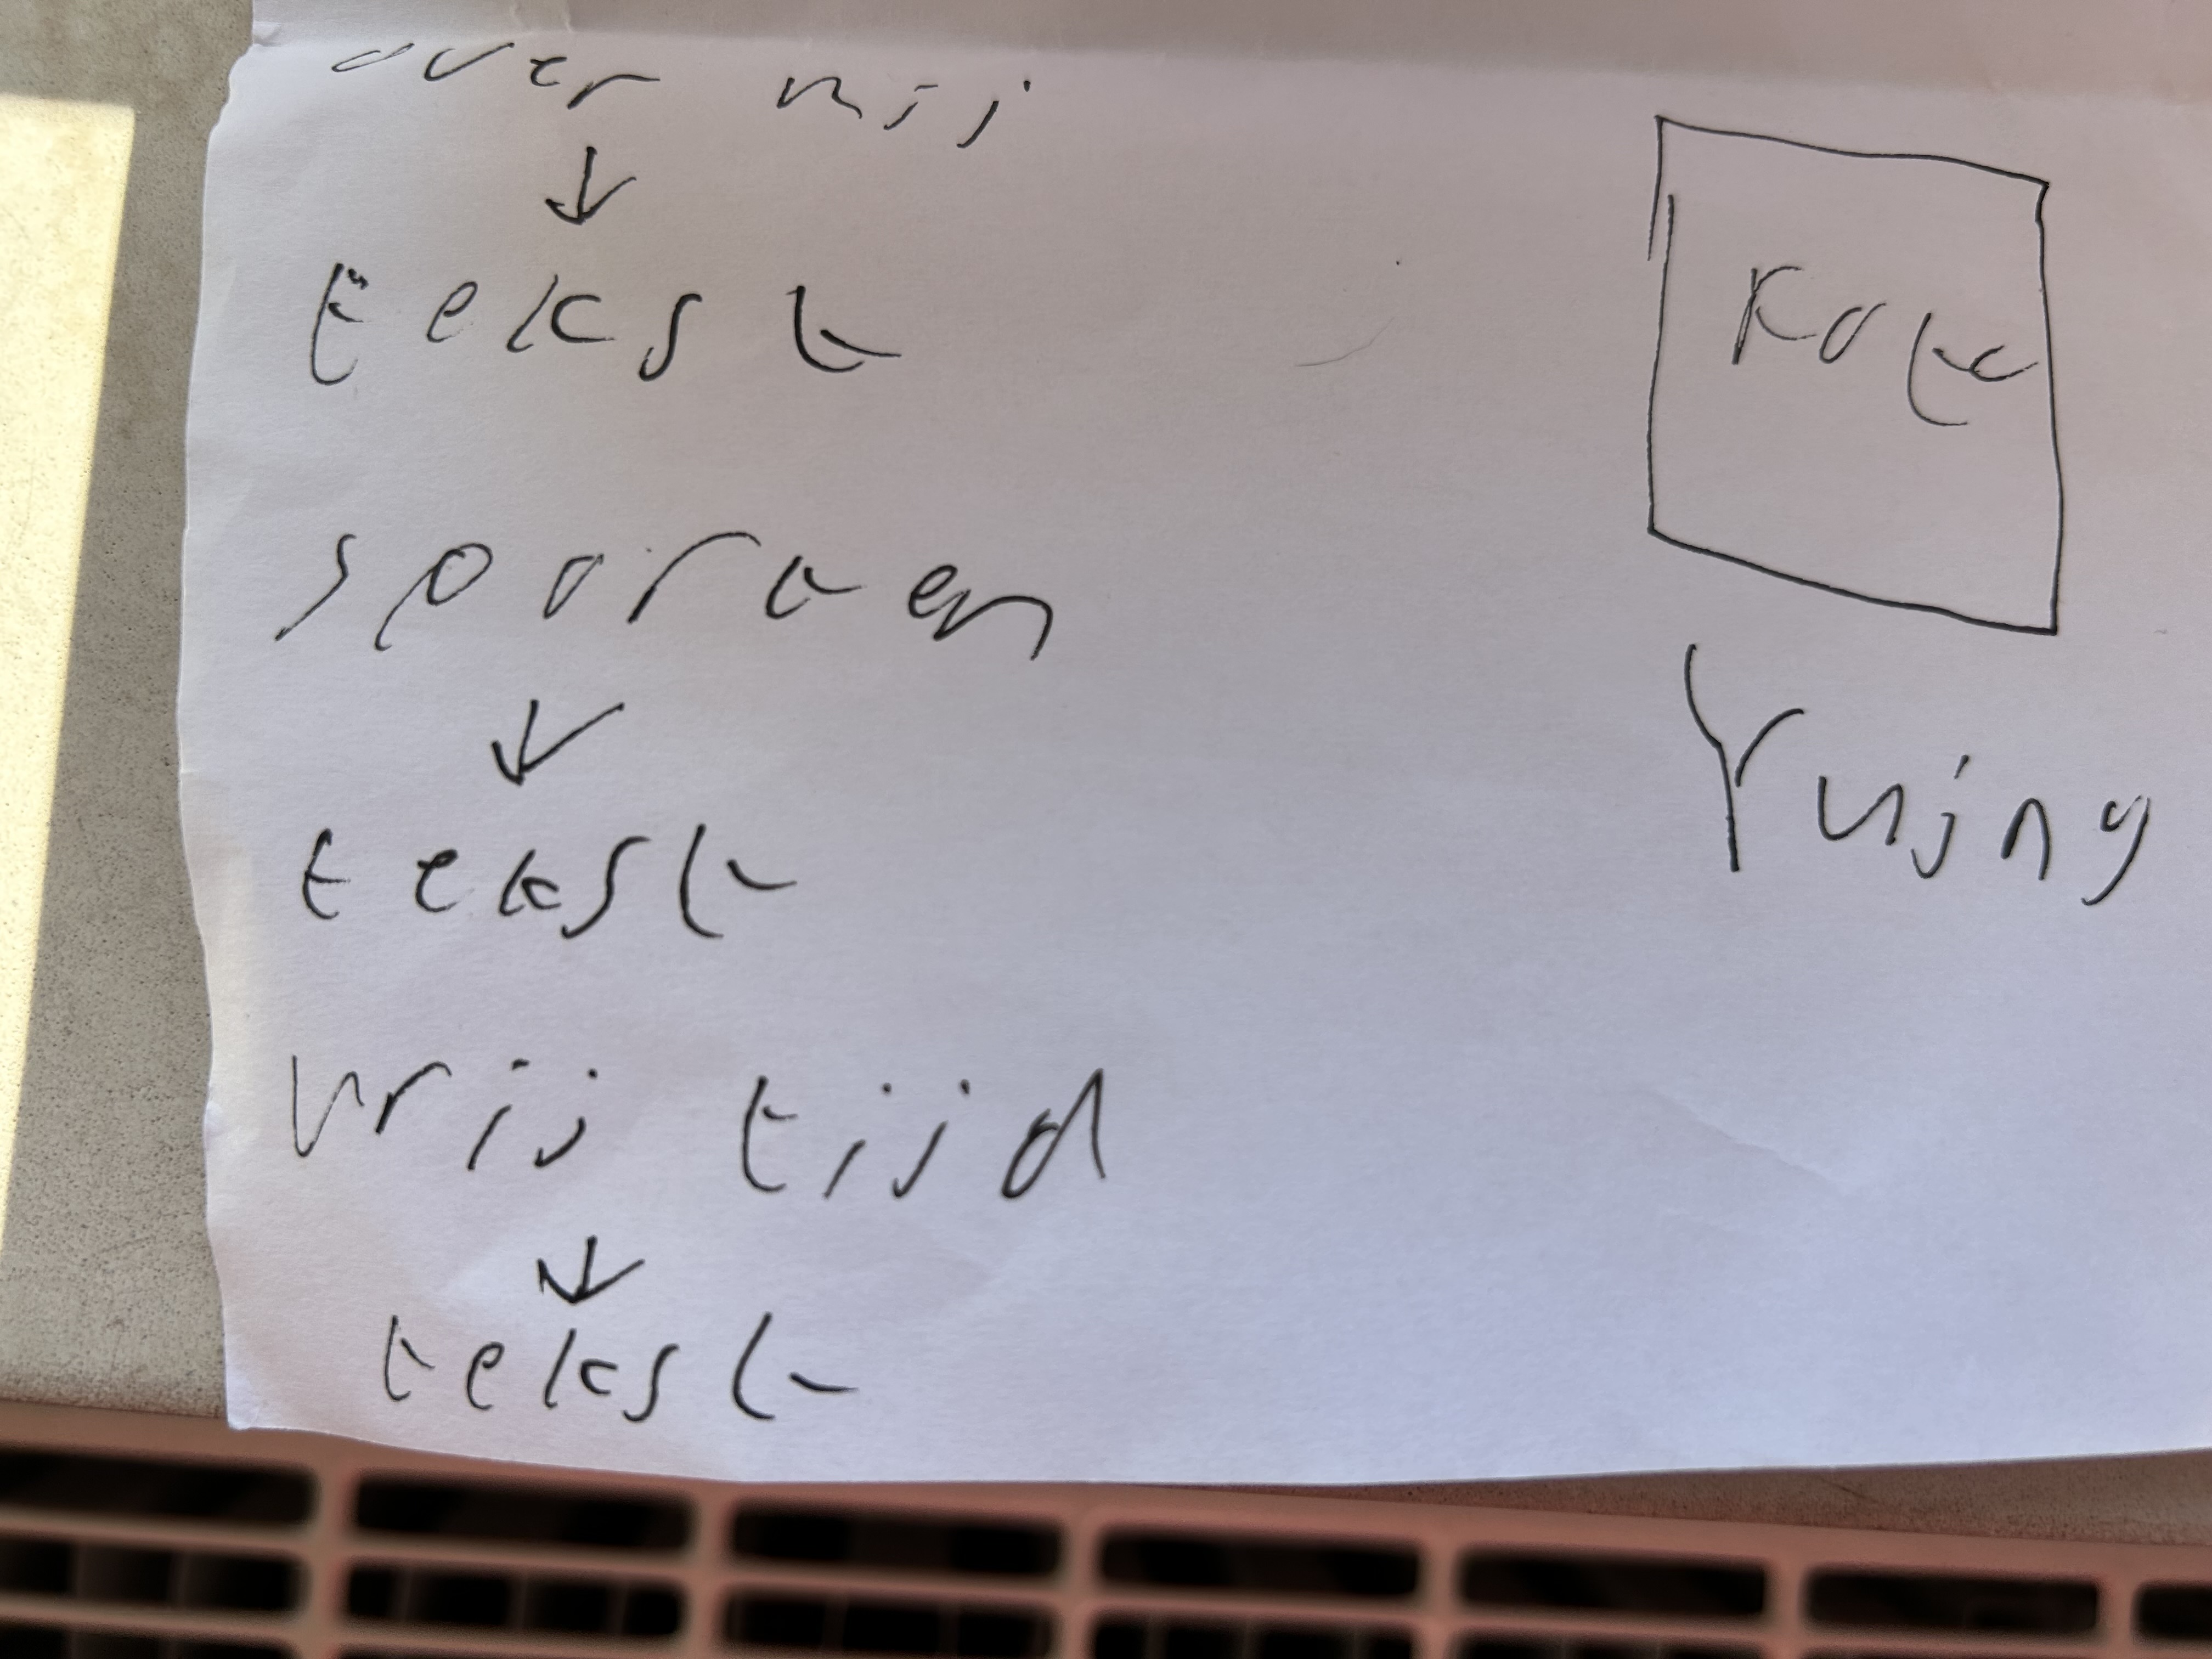 over mij
↓
tekst
sporten
↓
tekst
vrij tijd
↓
tekst
Foto
Yujny